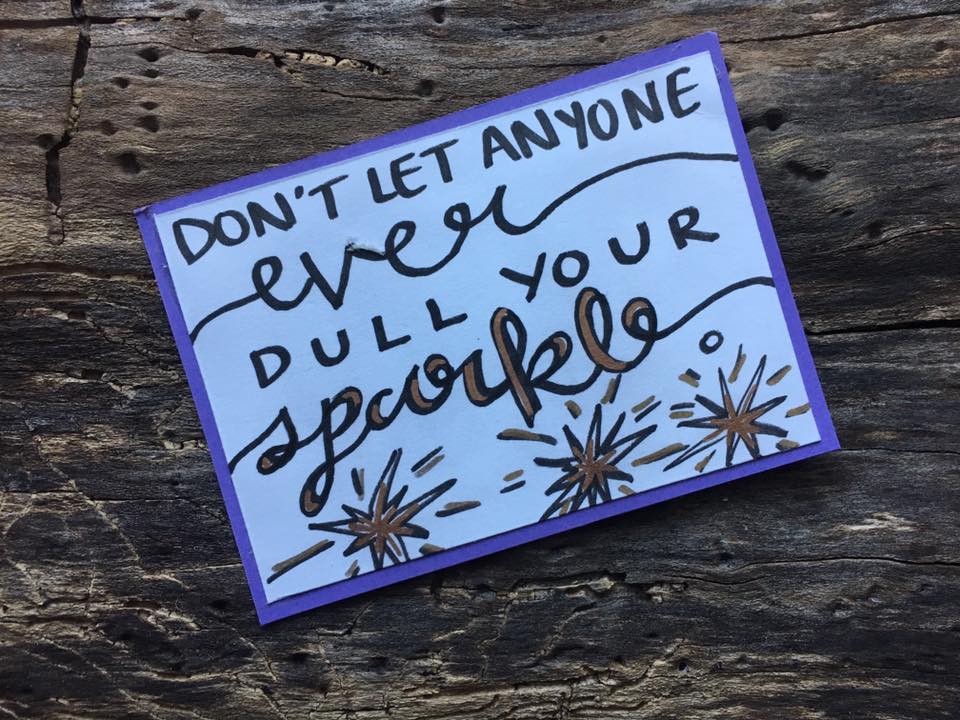 DON'T LET ANYONE
ever
DULL YOUR
sparkle.